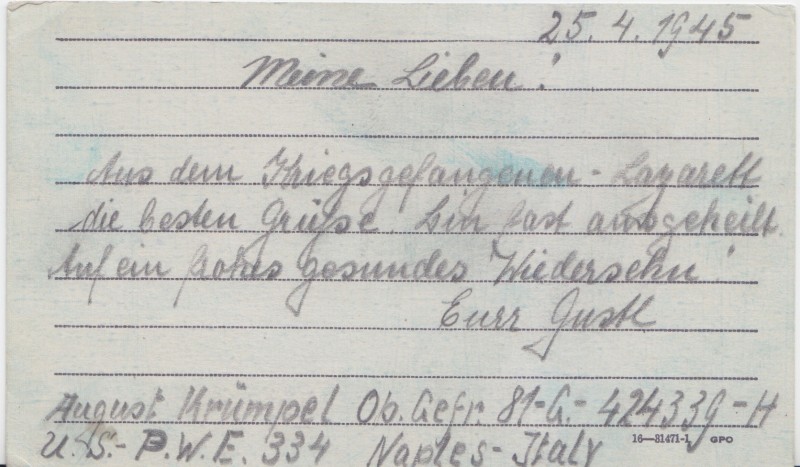 25. 4. 1945
Meine Lieben!
Aus dem Kriegsgefangenen-Lazarett
die besten Grüße. Bin fast ausgeheilt.
Auf ein frohes gesundes Wiedersehn!
Euer Gustl
August Krümpel Ob. Gefr. 81-G.- 424339-H
U.S.- P.W.E. 334 Naples-Italy
16—81471-1 GPO